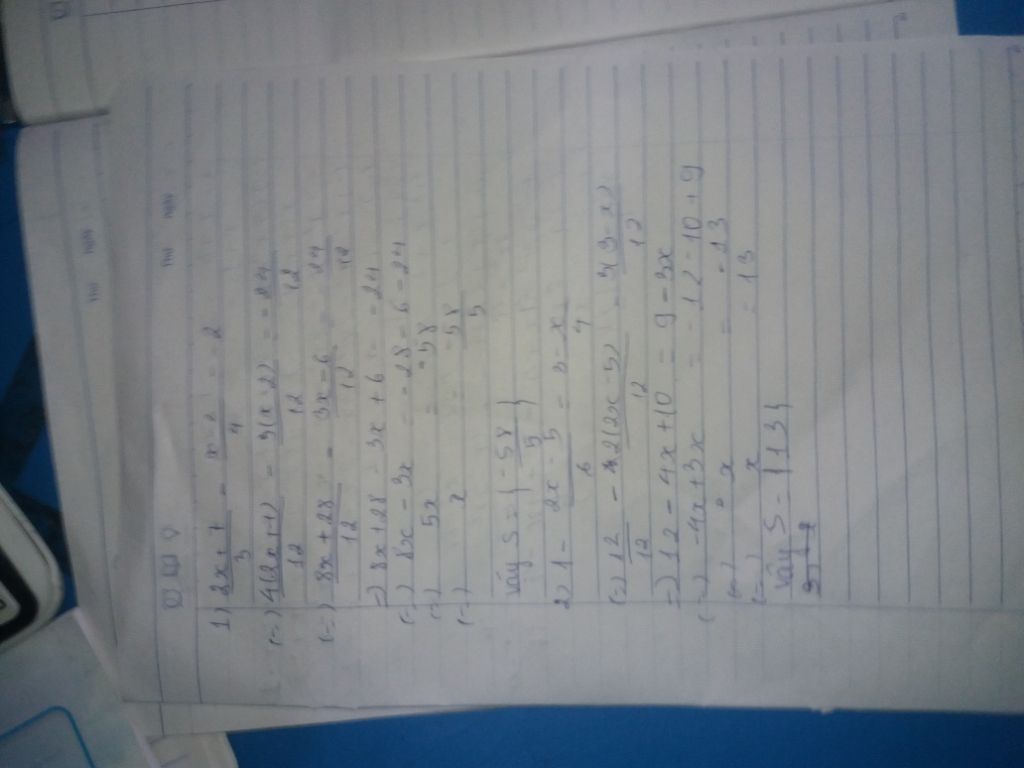 1) 2x+7/3 - x-2/4 = -2
(=) 4(2x+7)/12 - 3(x-2)/12 = -24/12
(=) 8x+28/12 - 3x-6/12 = -24/12
=) 8x+28 - 3x+6 = -24
(=) 8x - 3x = -28-6-24
(=) 5x = -58
(=) x = -58/5
Vậy S = { -58/5 }
2) 1 - 2x-5/6 = 3-x/4
(=) 12/12 - 2(2x-5)/12 = 3(3-x)/12
=) 12 - 4x+10 = 9-3x
(=) -4x+3x = -12-10+9
(=) -x = -13
(=) x = 13
Vậy S = {13}